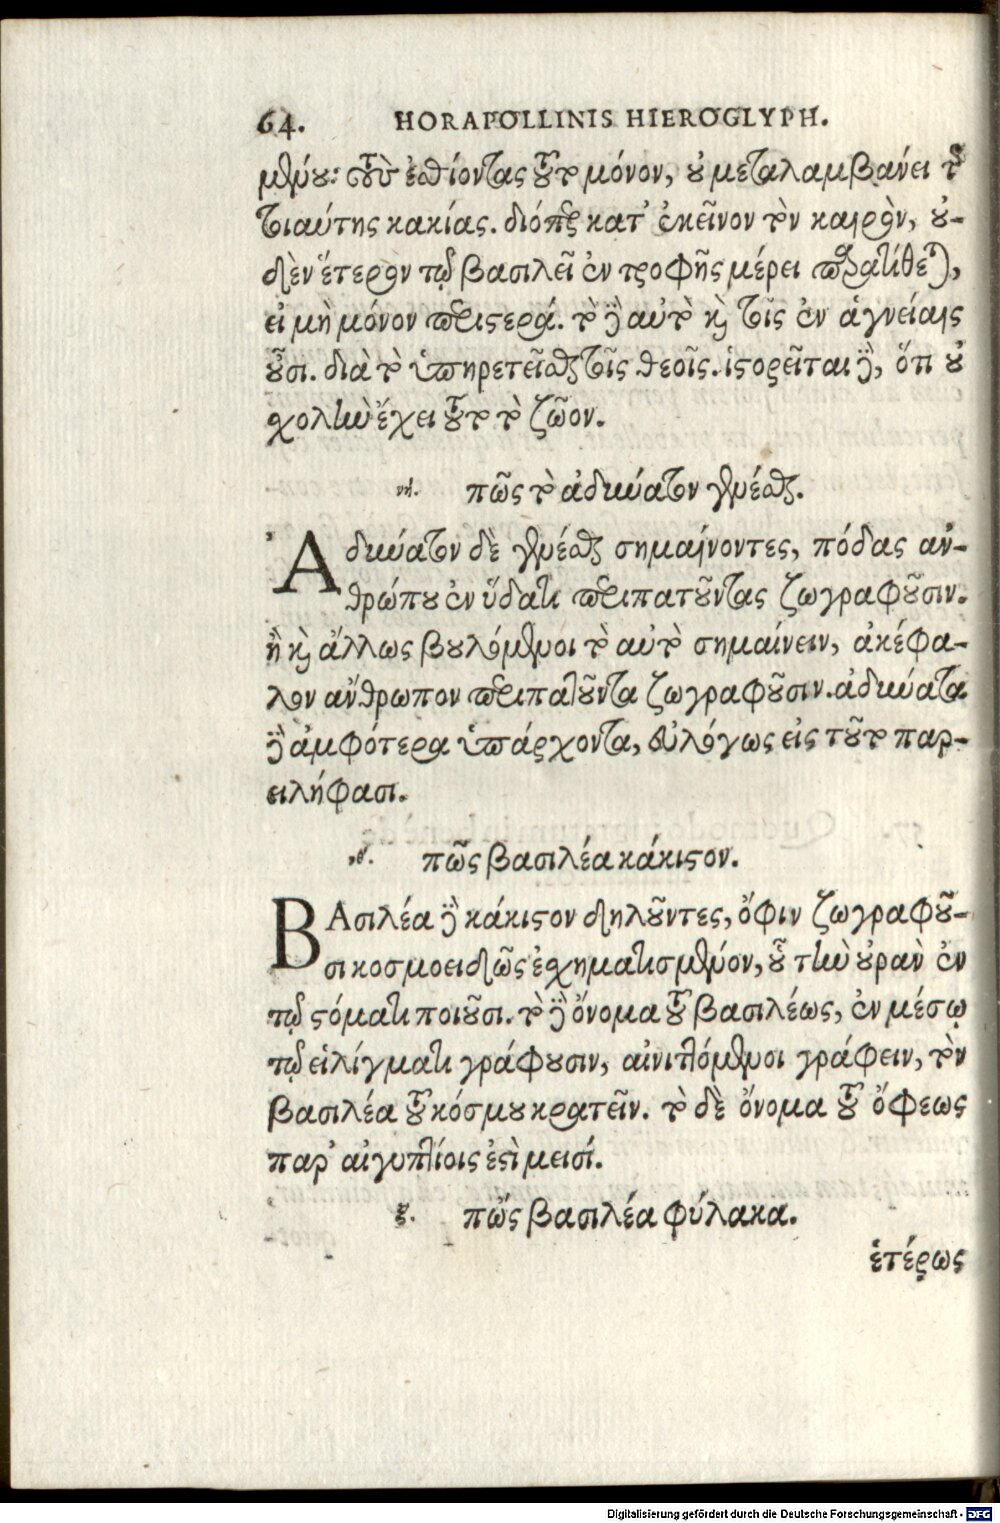 64. HORAPOLLINIS HIEROGLYPH.
μένου: τοὺς ἐσθίοντας τοῦτο μόνον, οὐ μεταλαμβάνει τῆς
τοιαύτης κακίας. διόπερ κατ' ἐκεῖνον τὸν καιρὸν, οὐ-
δὲν ἕτερον τῷ βασιλεῖ ἐν τροφῆς μέρει παρατίθεται,
εἰ μὴ μόνον περιστερά. τὸ δὲ αὐτὸ καὶ τοῖς ἐν ἁγνείαις
οὖσι. διὰ τὸ ὑπηρετεῖσθαι τοῖς θεοῖς. ἱστορεῖται δὲ, ὅτι οὐ
χολὴν ἔχει τοῦτο τὸ ζῶον.
νή. πῶς τὸ ἀδύνατον γενέσθαι.
Ἀδύνατον δὲ γενέσθαι σημαίνοντες, πόδας ἀν-
θρώπου ἐν ὕδατι περιπατοῦντας ζωγραφοῦσιν.
ἢ καὶ ἄλλως βουλόμενοι τὸ αὐτὸ σημαίνειν, ἀκέφα-
λον ἄνθρωπον περιπατοῦντα ζωγραφοῦσιν. ἀδύνατα
δὲ ἀμφότερα ὑπάρχοντα, εὐλόγως εἰς τοῦτο παρ-
ειλήφασι.
νθ. πῶς βασιλέα κάκιστον.
ΒΑσιλέα δὲ κάκιστον δηλοῦντες, ὄφιν ζωγραφοῦ-
σι κοσμοειδῶς ἐσχηματισμένον, οὗ τὴν οὐρὰν ἐν
τῷ στόματι ποιοῦσι. τὸ δὲ ὄνομα τοῦ βασιλέως, ἐν μέσῳ
τῷ εἱλίγματι γράφουσιν, αἰνιττόμενοι γράφειν, τὸν
βασιλέα τοῦ κόσμου κρατεῖν. τὸ δὲ ὄνομα τοῦ ὄφεως
παρ' αἰγυπτίοις ἐστὶ μεισί.
ξ. πῶς βασιλέα φύλακα.
ἑτέρως
Digitalisierung gefördert durch die Deutsche Forschungsgemeinschaft - DFG